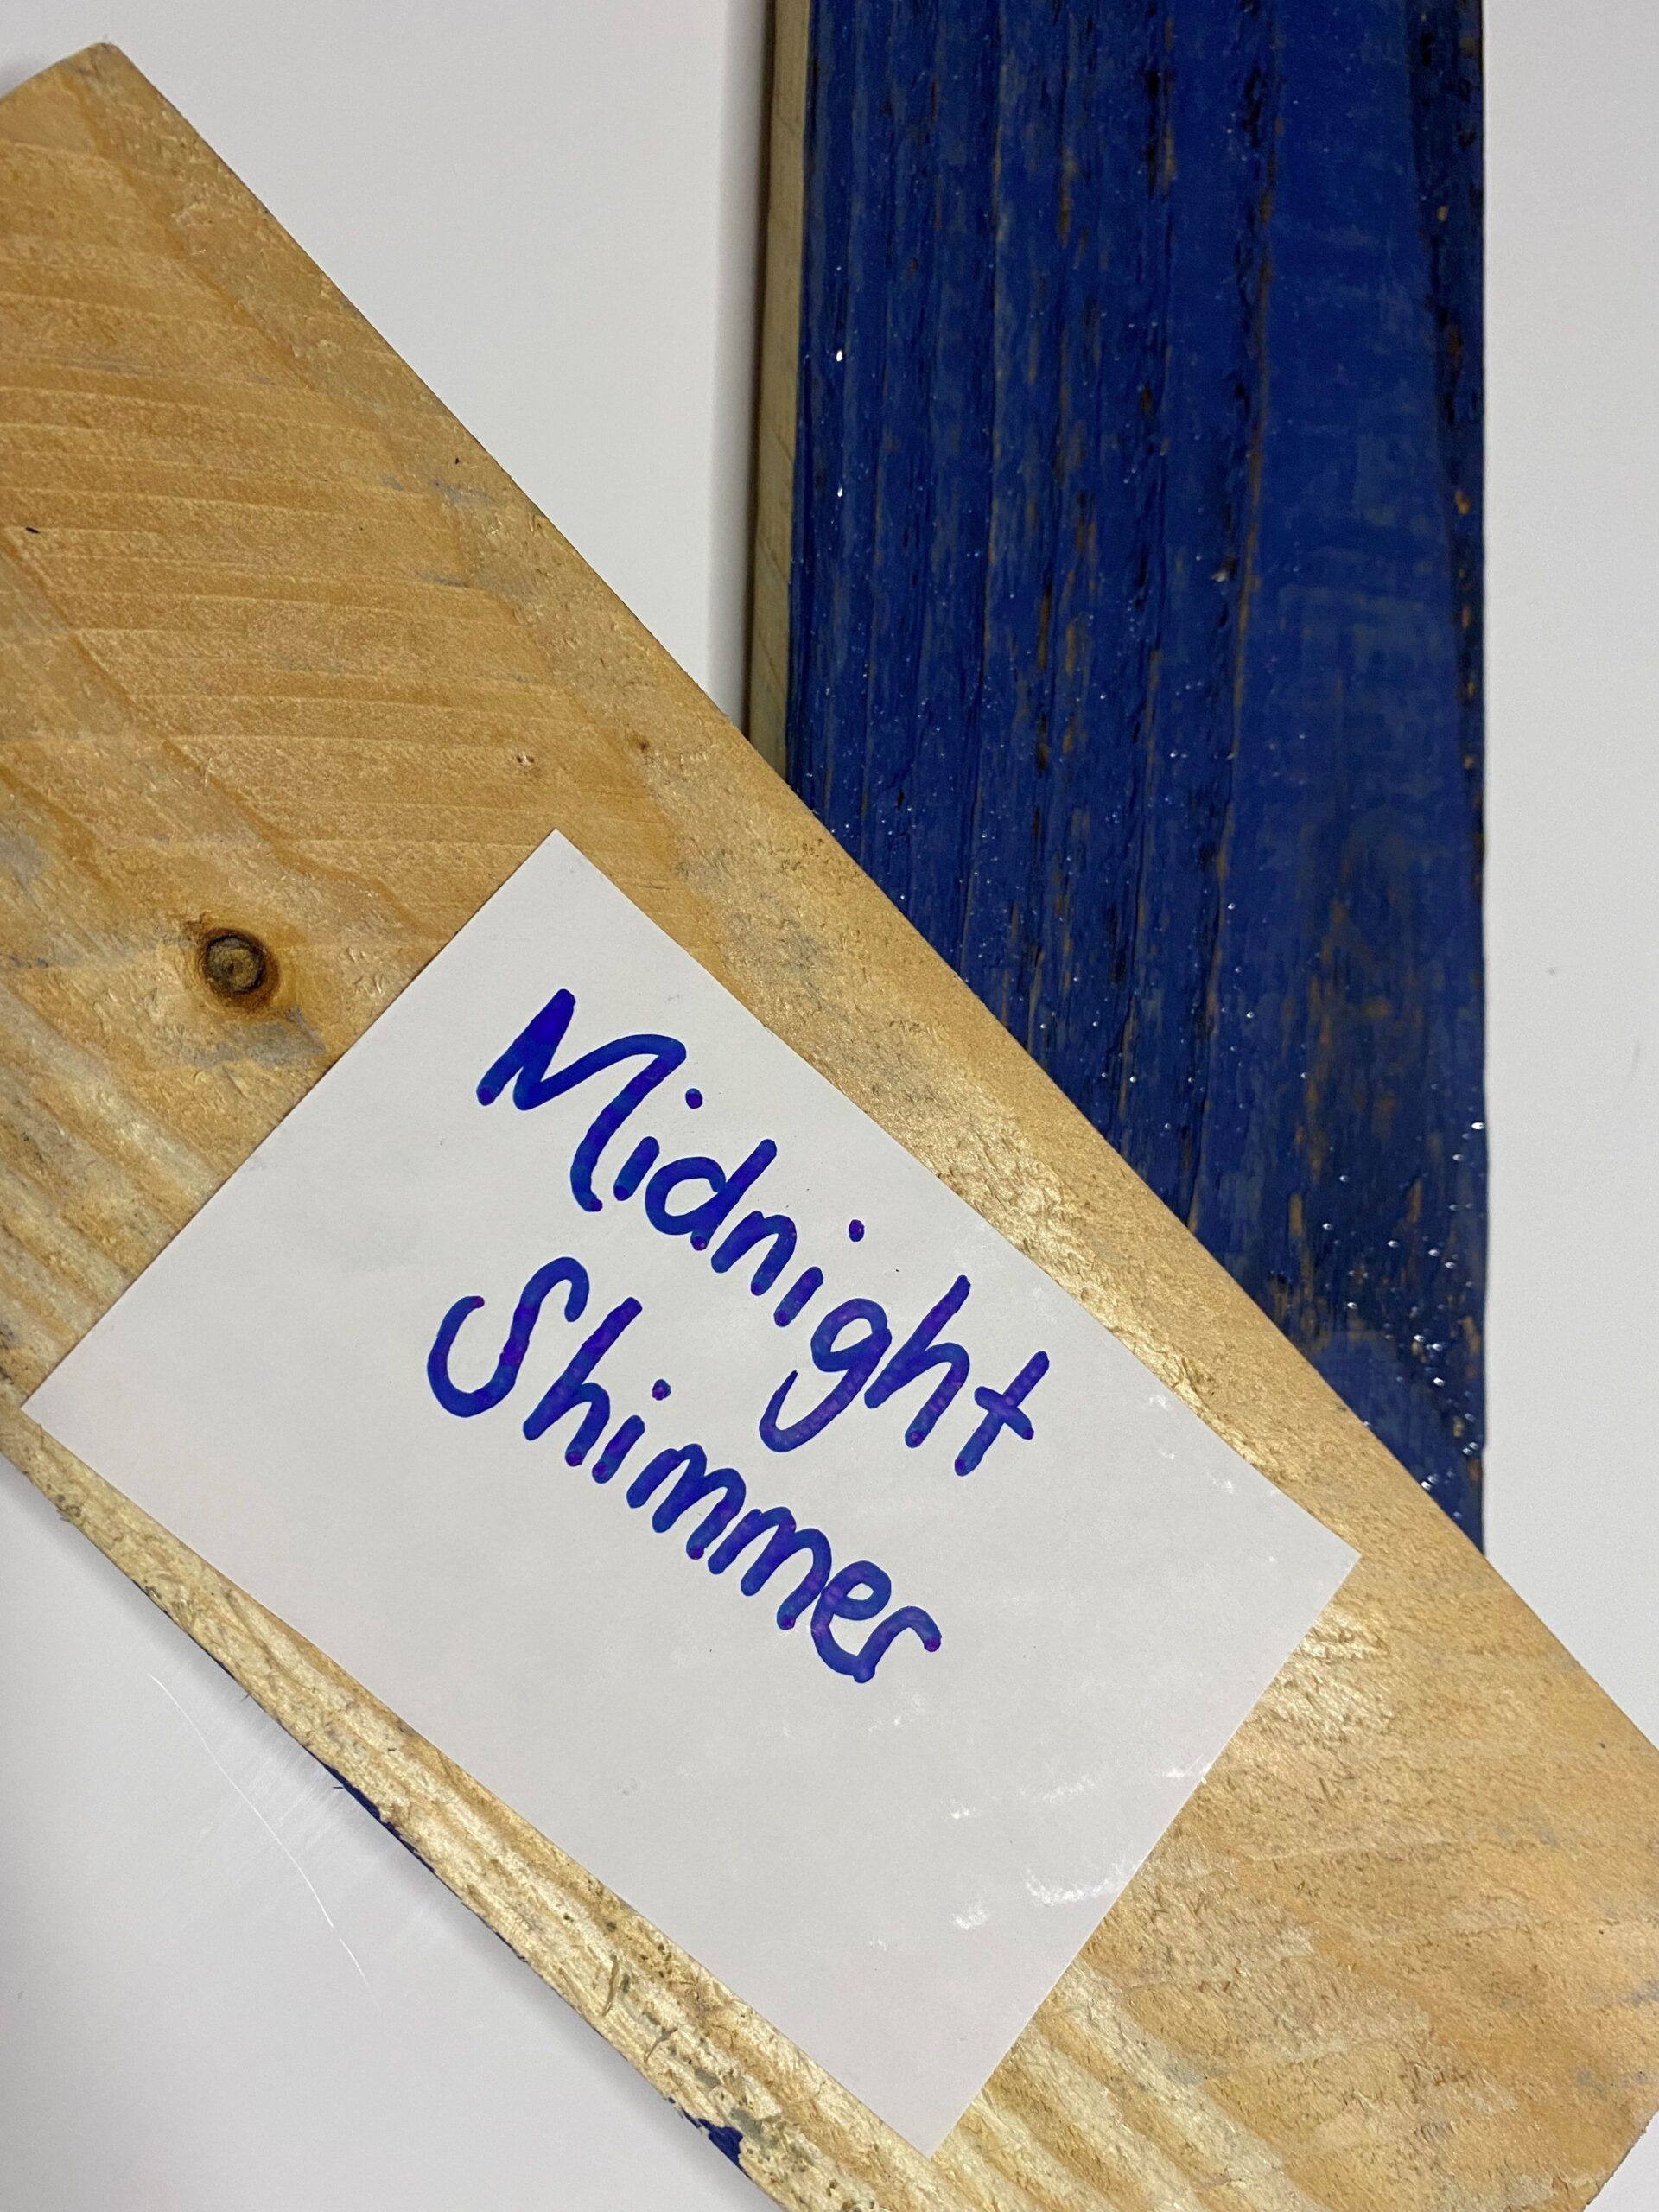 Midnight
Shimmer